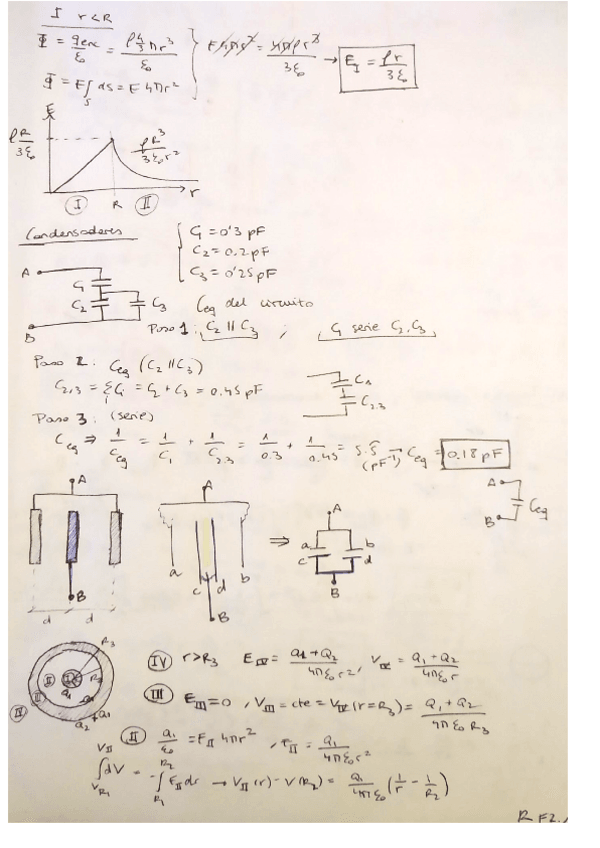 I r<R
Φ = qenc/ε₀ = ρ 4/3 π r³/ε₀ } E 4πr² = 4πρr³/3ε₀ → E_I = ρr/3ε₀
Φ = E∫_S ds = E 4πr²
E
ρR/3ε₀
ρR³/3ε₀r²
I R II r
Condensadores
C₁ = 0'3 pF
C₂ = 0.2 pF
C₃ = 0'25 pF
A
C₁
C₂ C₃
B
Ceq del circuito
Paso 1: C₂ || C₃ , C₁ serie C₂,C₃
Paso 2: Ceq (C₂ || C₃)
C₂,₃ = ΣCi = C₂ + C₃ = 0.45 pF
C₁
C₂.₃
Paso 3: (serie)
Ceq ⇒ 1/Ceq = 1/C₁ + 1/C₂.₃ = 1/0.3 + 1/0.45 = 5.5 (pF⁻¹) → Ceq = 0.18 pF
A
B
Ceq
A
B
d d
A
a c d b
B
⇒
A
a b
c d
B
R₃
IV r>R₃ E_IV = Q₁+Q₂/4πε₀r² , V_IV = Q₁+Q₂/4πε₀r
III E_III = 0 , V_III = cte = V_IV (r=R₃) = Q₁+Q₂/4πε₀R₃
II Q₁/ε₀ = E_II 4πr² , E_II = Q₁/4πε₀r²
∫dV = -∫E_II dr → V_II(r) - V(R₂) = Q₁/4πε₀ (1/r - 1/R₂)